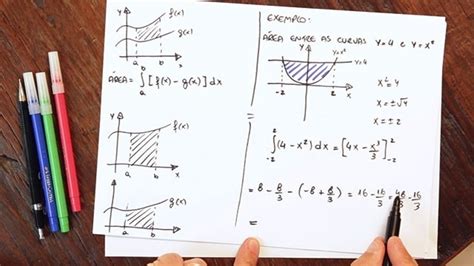 y
f(x)
g(x)
a b x
ÁREA = ∫ₐᵇ [f(x) - g(x)] dx
y
f(x)
a b x
y
g(x)
a b x
EXEMPLO:
ÁREA ENTRE AS CURVAS y=4 e y=x²
y
y=x²
y=4
-2 2 x
x²=4
x=±√4
x=±2
∫₋₂² (4-x²) dx = [4x - x³/3]₋₂²
= 8 - 8/3 - (-8 + 8/3) = 16 - 16/3 = 48/3 - 16/3
=